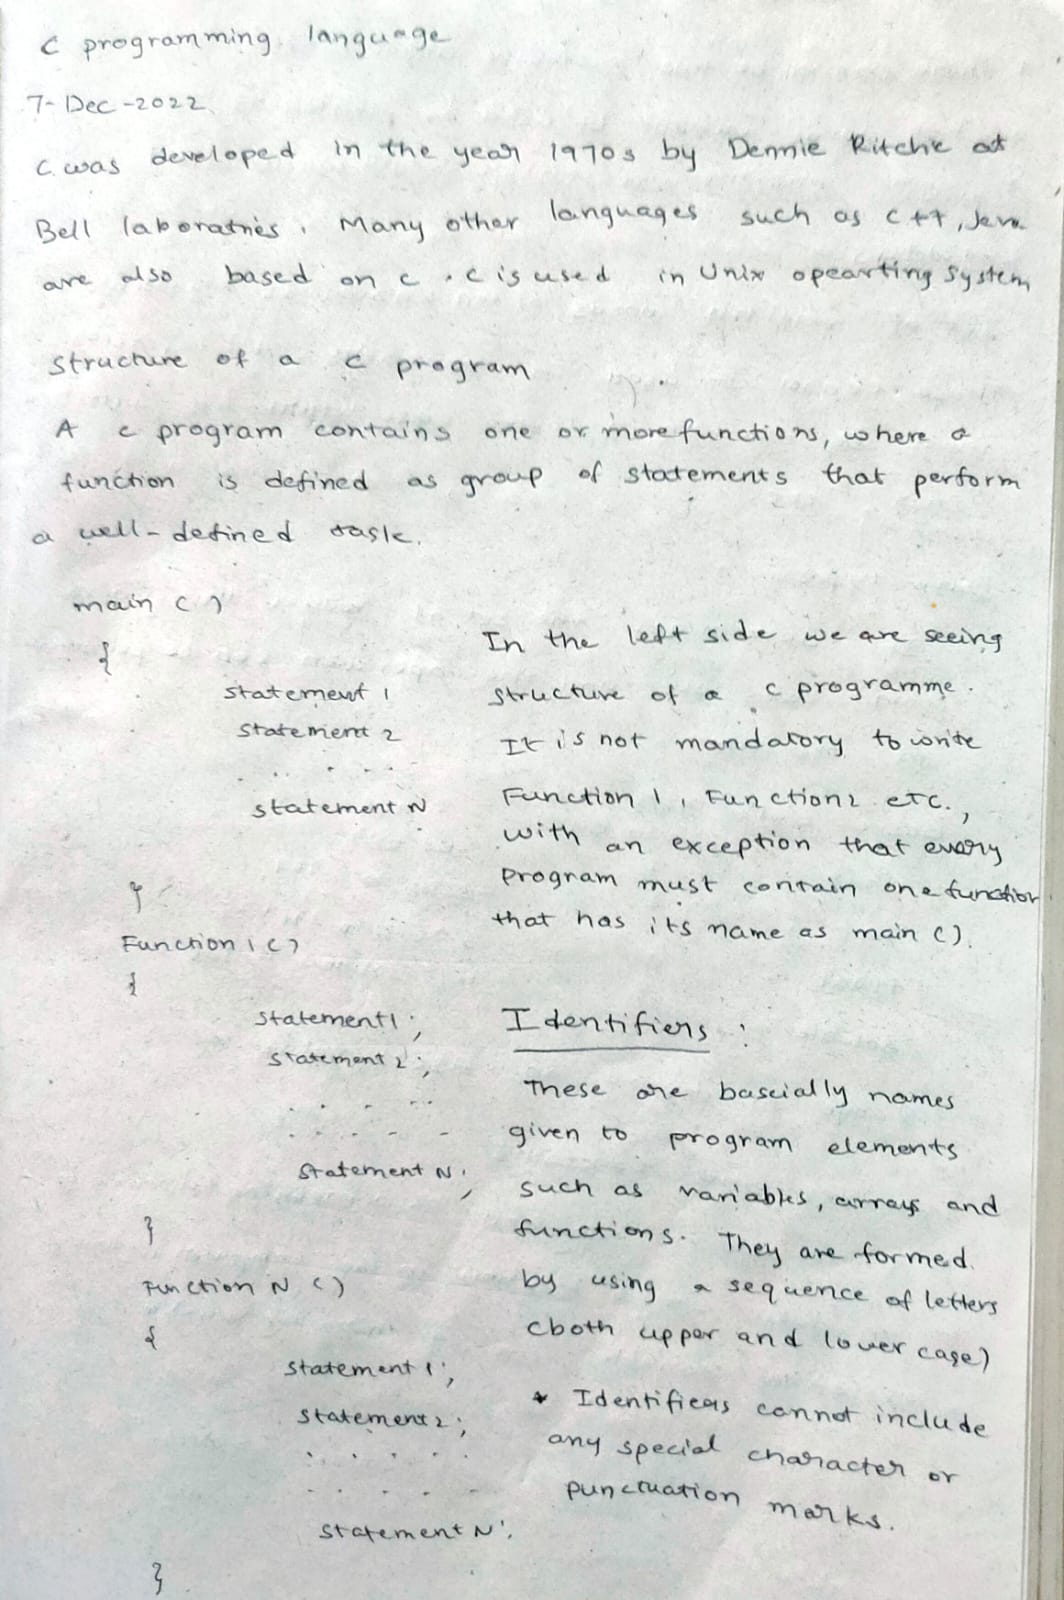 C programming language
7-Dec-2022
C was developed in the year 1970s by Dennie Ritchie at
Bell laboratries. Many other languages such as C++, Java
are also based on c. C is used in Unix opearting System
Structure of a c program
A c program contains one or more functions, where a
function is defined as group of statements that perform
a well-defined task.
main ()
{
statement 1
statement 2
. . . . . .
statement N
}
Function 1 ()
{
statement1;
statement 2;
. . . . .
. . . . .
statement N;
}
Function N ()
{
statement 1;
statement 2;
. . . . .
. . . . .
statement N;
}
In the left side we are seeing
structure of a c programme.
It is not mandatory to write
Function 1, Function2 etc.,
with an exception that every
program must contain one function
that has its name as main ().
Identifiers :
These are bascially names
given to program elements
such as variables, arrays and
functions. They are formed
by using a sequence of letters
(both upper and lower case)
* Identifiers cannot include
any special character or
punctuation marks.